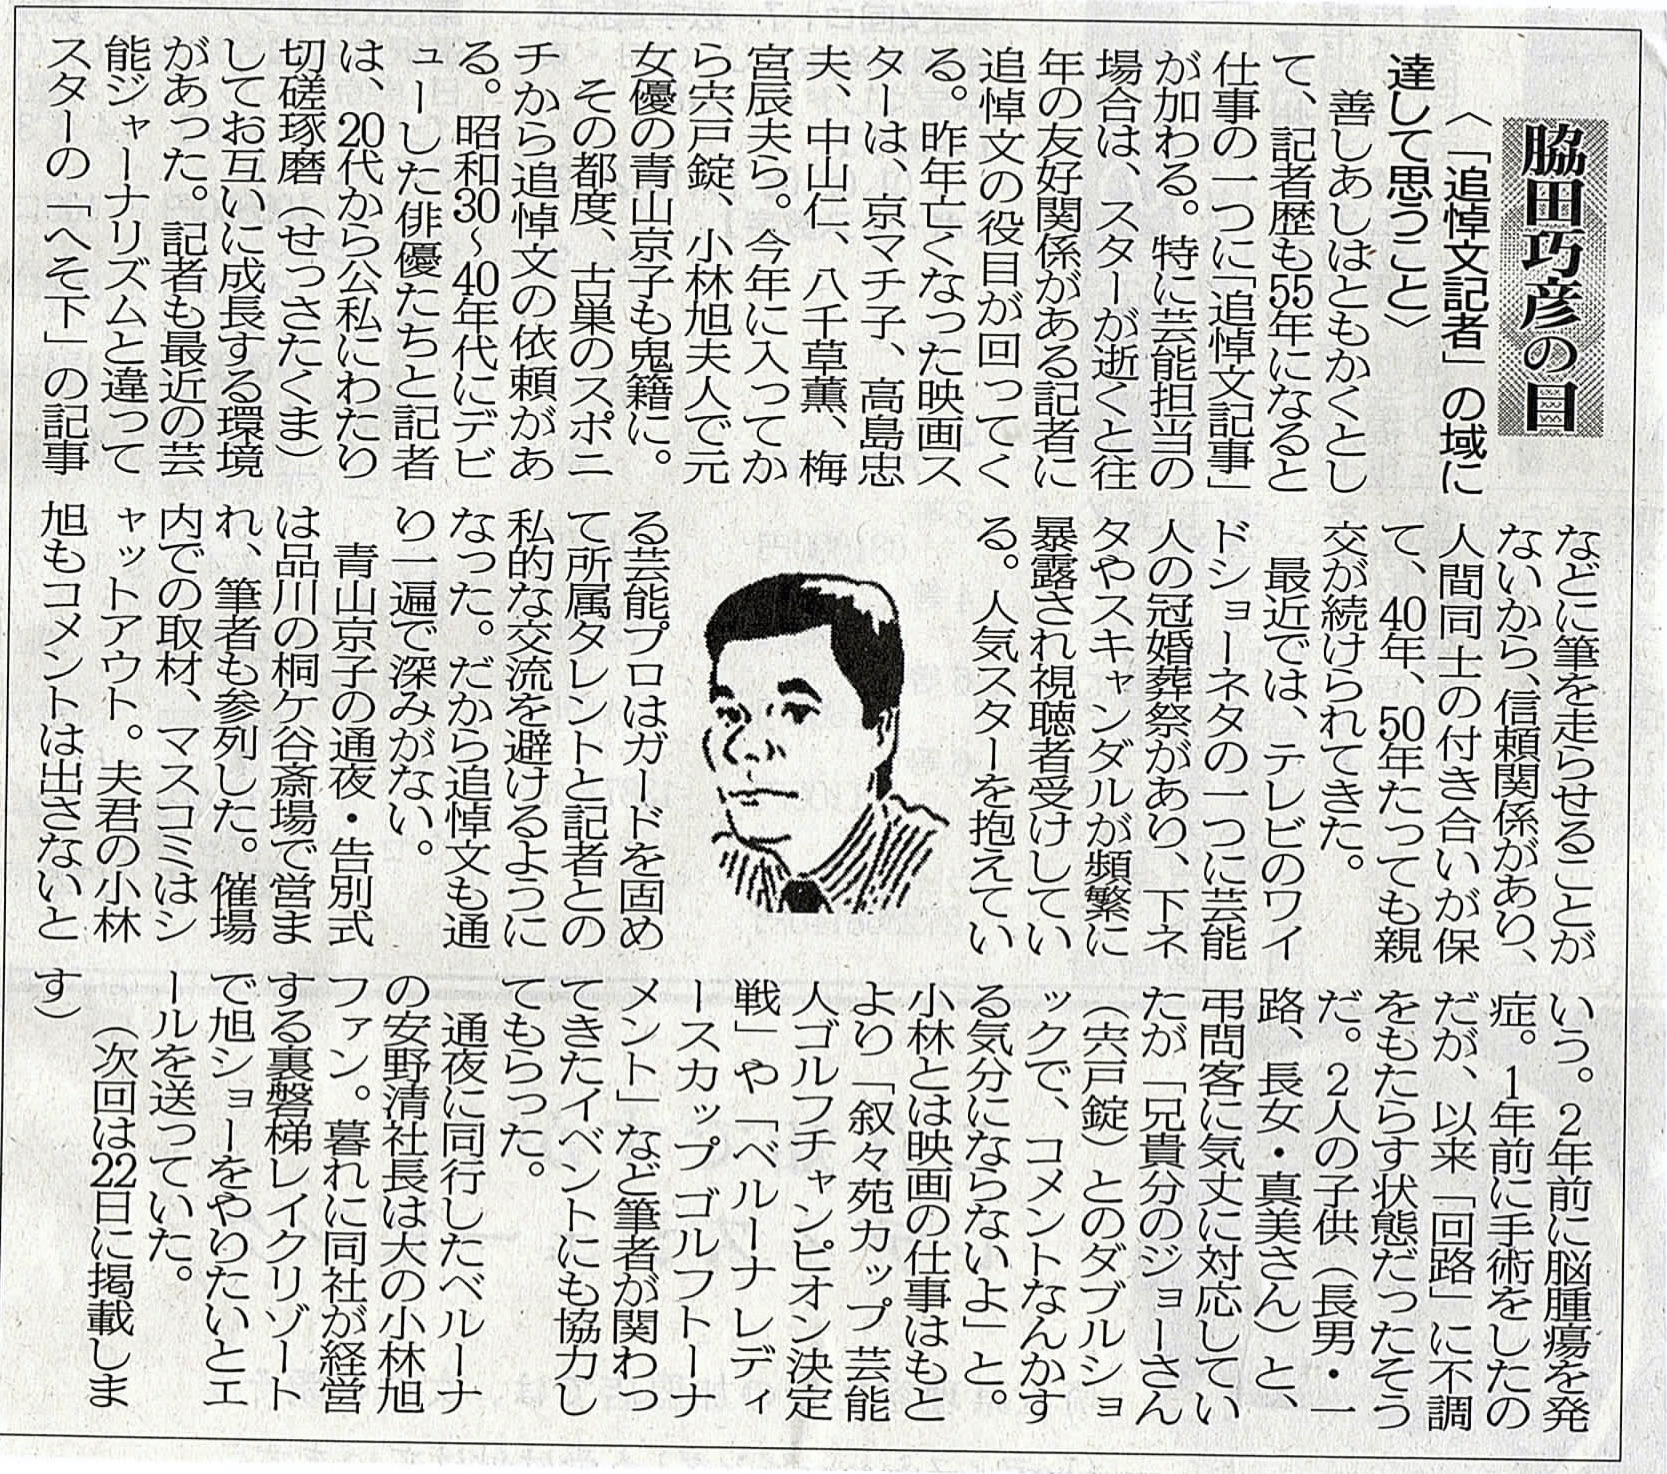 脇田巧彦の目
〈「追悼文記者」の域に
達して思うこと〉
善しあしはともかくとし
て、記者歴も55年になると
仕事の一つに「追悼文記事」
が加わる。特に芸能担当の
場合は、スターが逝くと往
年の友好関係がある記者に
追悼文の役目が回ってく
る。昨年亡くなった映画ス
ターは、京マチ子、高島忠
夫、中山仁、八千草薫、梅
宮辰夫ら。今年に入ってか
ら宍戸錠、小林旭夫人で元
女優の青山京子も鬼籍に。
その都度、古巣のスポニ
チから追悼文の依頼があ
る。昭和30〜40年代にデビ
ューした俳優たちと記者
は、20代から公私にわたり
切磋琢磨（せっさたくま）
してお互いに成長する環境
があった。記者も最近の芸
能ジャーナリズムと違って
スターの「へそ下」の記事
などに筆を走らせることが
ないから、信頼関係があり、
人間同士の付き合いが保
て、40年、50年たっても親
交が続けられてきた。
最近では、テレビのワイ
ドショーネタの一つに芸能
人の冠婚葬祭があり、下ネ
タやスキャンダルが頻繁に
暴露され視聴者受けしてい
る。人気スターを抱えてい
る芸能プロはガードを固め
て所属タレントと記者との
私的な交流を避けるように
なった。だから追悼文も通
り一遍で深みがない。
青山京子の通夜・告別式
は品川の桐ケ谷斎場で営ま
れ、筆者も参列した。催場
内での取材、マスコミはシ
ャットアウト。夫君の小林
旭もコメントは出さないと
いう。2年前に脳腫瘍を発
症。1年前に手術をしたの
だが、以来「回路」に不調
をもたらす状態だったそう
だ。2人の子供（長男・一
路、長女・真美さん）と、
弔問客に気丈に対応してい
たが「兄貴分のジョーさん
（宍戸錠）とのダブルショ
ックで、コメントなんかす
る気分にならないよ」と。
小林とは映画の仕事はもと
より「叙々苑カップ 芸能
人ゴルフチャンピオン決定
戦」や「ベルーナ レディ
ースカップ ゴルフトーナ
メント」など筆者が関わっ
てきたイベントにも協力し
てもらった。
通夜に同行したベルーナ
の安野清社長は大の小林旭
ファン。暮れに同社が経営
する裏磐梯レイクリゾート
で旭ショーをやりたいとエ
ールを送っていた。
（次回は22日に掲載しま
す）